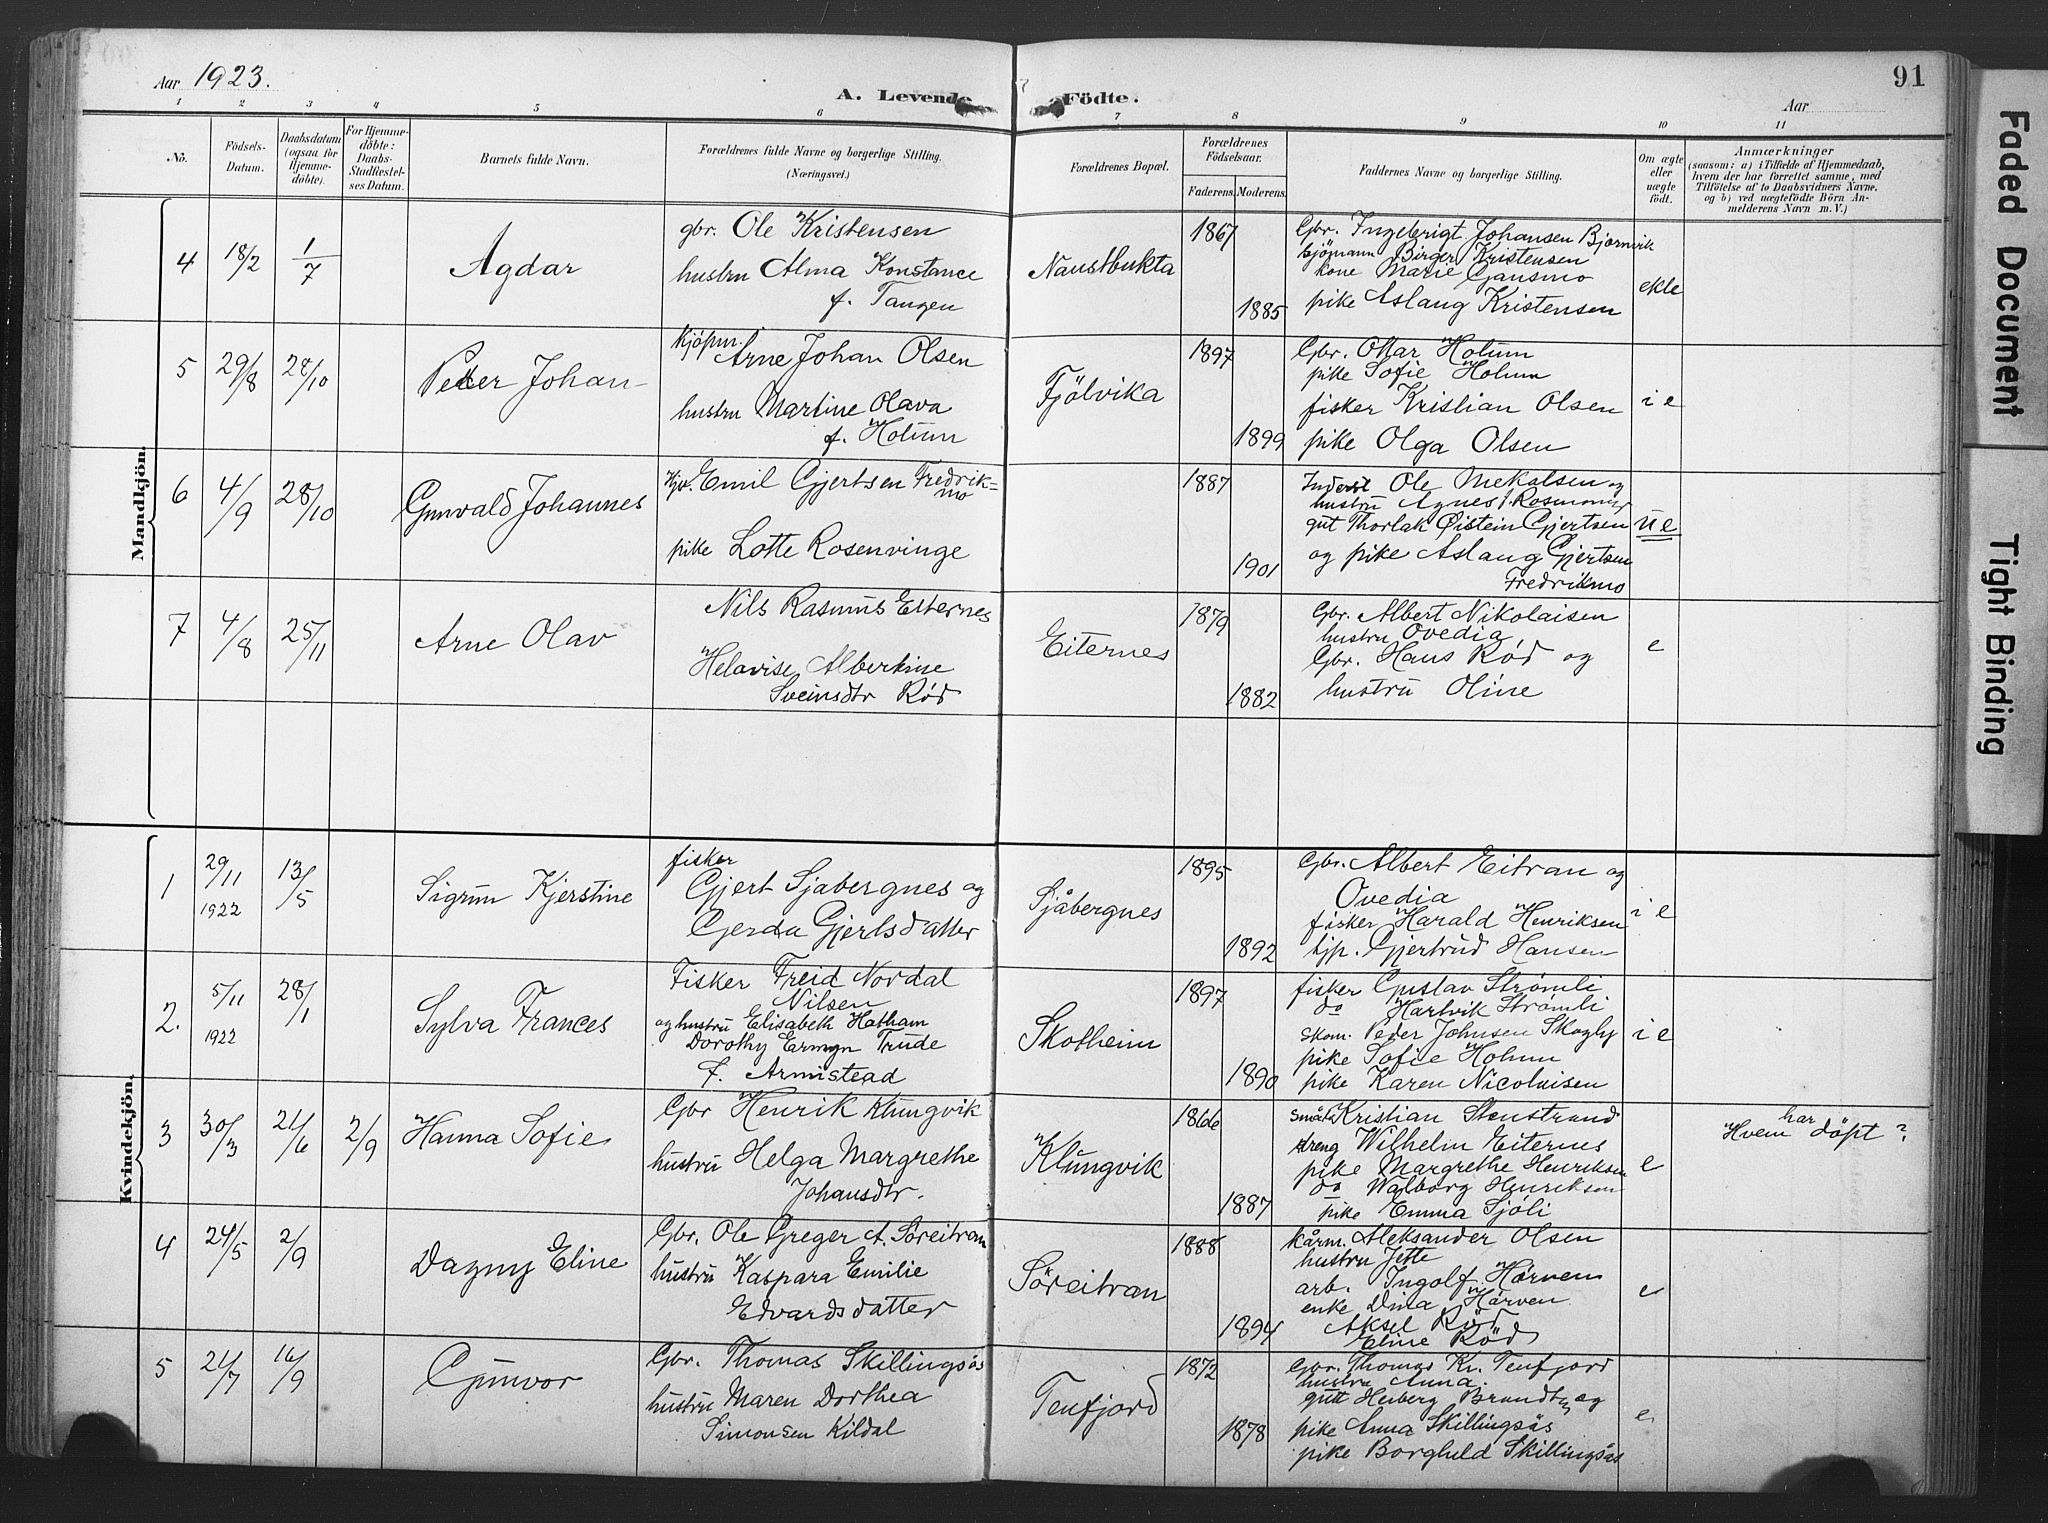 Aar 1923.
A. Levende Födte.
Aar
91
1 2 3 4 5 6 7 8 9 10 11
No.
Födsels-Datum.
Daabsdatum (ogsaa for Hjemme-döbte).
For Hjemme-döbte: Daabs-Stadfæstel-ses Datum.
Barnets fulde Navn.
Forældrenes fulde Navne og borgerlige Stilling.
(Næringsvei.)
Forældrenes Bopæl.
Forældrenes Födselsaar.
Faderens. Moderens.
Faddernes Navne og borgerlige Stilling.
Om ægte eller uægte födt.
Anmærkninger
(saasom: a) i Tilfælde af Hjemmedaab,
hvem der har forrettet samme, med
Tilföielse af to Daabsvidners Navne.
og b) ved uægtefödte Börn An-
melderens Navn m. V.)
Mandkjön.
4 18/2 1/7 Agdar
gbr. Ole Kristensen
hustru Alma Konstance
f. Tangen
Naustbukta
1867
1885
Gbr. Ingebrigt Johansen Bjørnvik
sjömann Birger Kristensen
kone Marie Gansmo
pike Aslaug Kristensen
ekte
5 29/8 28/10 Peter Johan
kjöpm. Arne Johan Olsen
hustru Martine Olava
f. Holum
Fjölvika
1897
1899
Gbr. Ottar Holum
pike Sofie Holum
fisker Kristian Olsen
pike Olga Olsen
i e
6 4/9 28/10 Gunvald Johannes
Emil Gjertsen Fredrik=
mo
pike Lotte Rosenvinge
1887
1901
Ole Mekalsen og
hustru Agnes f. Rosenvinge
gut Thorlak Øistein Gjertsen
og pike Aslaug Gjertsen
Fredrikmo
u e
7 4/8 25/11 Arne Olav
Nils Rasmus Eiternes
Helovise Albertine
Sveinsdtr Rød
Eiternes
1879
1882
Gbr. Albert Nikolaisen
hustru Ovedia
Gbr. Hans Rød og
hustru Oline
e
Kvindekjön.
1 29/11 1922 13/5 Sigrun Kjerstine
fisker
Gjert Sjåbergnes og
Gerda Gjertsdatter
Sjåbergnes
1895
1892
Gbr. Albert Eitran og
Ovedia
fisker Harald Henriksen
tjp. Gjertrud Hansen
i e
2. 5/11 1922 28/1 Sylva Frances
Fisker Freid Nordal
Nilsen
og hustru Elisabeth Hatham
Dorothy Ermyn Trude
f. Armistead
Skotheim
1897
1890
fisker Gustav Strømli
do Hartvik Strømli
Skom. Peder Johnsen Skogly
pike Sofie Holum
pike Karen Nicolaisen
i e
3 30/3 21/6 2/9 Hanna Sofie
Gbr Henrik Klungvik
hustru Helga Margrethe
Johansdtr.
Klungvik
1866
1887
Kristian Stenstrand
dreng Wilhelm Eiternes
pike Margrethe Henriksen
do Walborg Henriksen
pike Emma Sjöli
e
Hvem har döpt?
4 24/5 2/9 Dagny Eline
Gbr. Ole Greger A. Söreitran
hustru Kaspara Emilie
Edvardsdatter
Söreitran
1888
1894
kårm. Aleksander Olsen
hustru Jette
arb. Ingolf Hörven
enke Dina Hörven
Aksel Röd
Eline Röd
e
5 21/7 16/9 Gunvor
Gbr. Thomas Skillingsås
hustru Maren Dorthea
Simonsen Kildal
Teufjord
1872
1878
Gbr. Thomas Kr. Teufjord
hustru Anna
gutt Heiberg Brandtz og
pike Anna Skillingsås
pike Borghild Skillingsås
e
Faded Document
Tight Binding